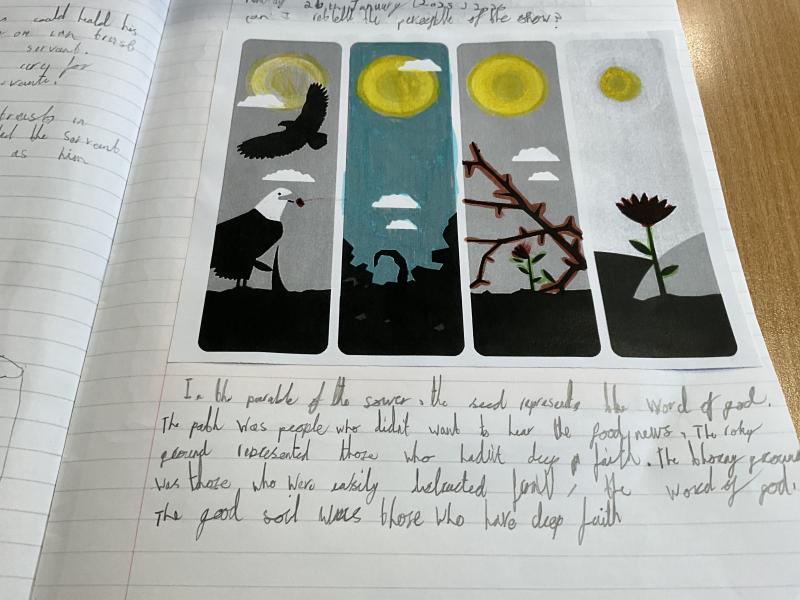 could build his
or on can trust
servant.
cry for
servants.
trusts in
ded the servant
as him
26th January 2026
can I retell the parable of the show?
In the parable of the sower, the seed represents the word of god.
The path was people who didn't want to hear the good news, The roky
ground represented those who hadn't deep faith. The thorny ground
was those who were easily distracted from, the word of god.
The good soil was those who have deep faith